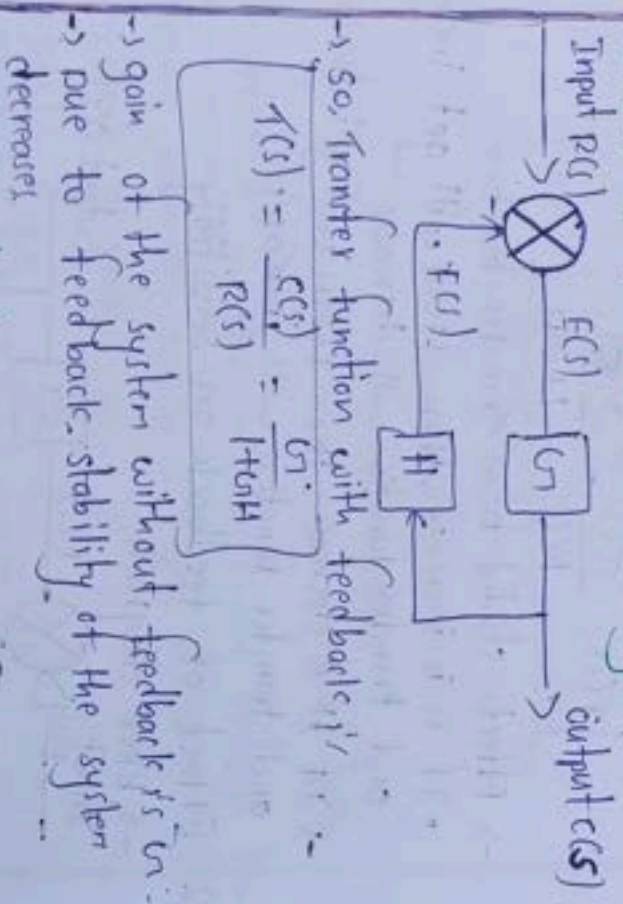 Input R(s)
E(s)
G
output C(S)
-
F(s)
H
-> So, Transfer function with feedback, is
T(s) = C(s)/R(s) = G/1+GH
-> gain of the system without feedback is G.
-> Due to feedback, stability of the system
decreases